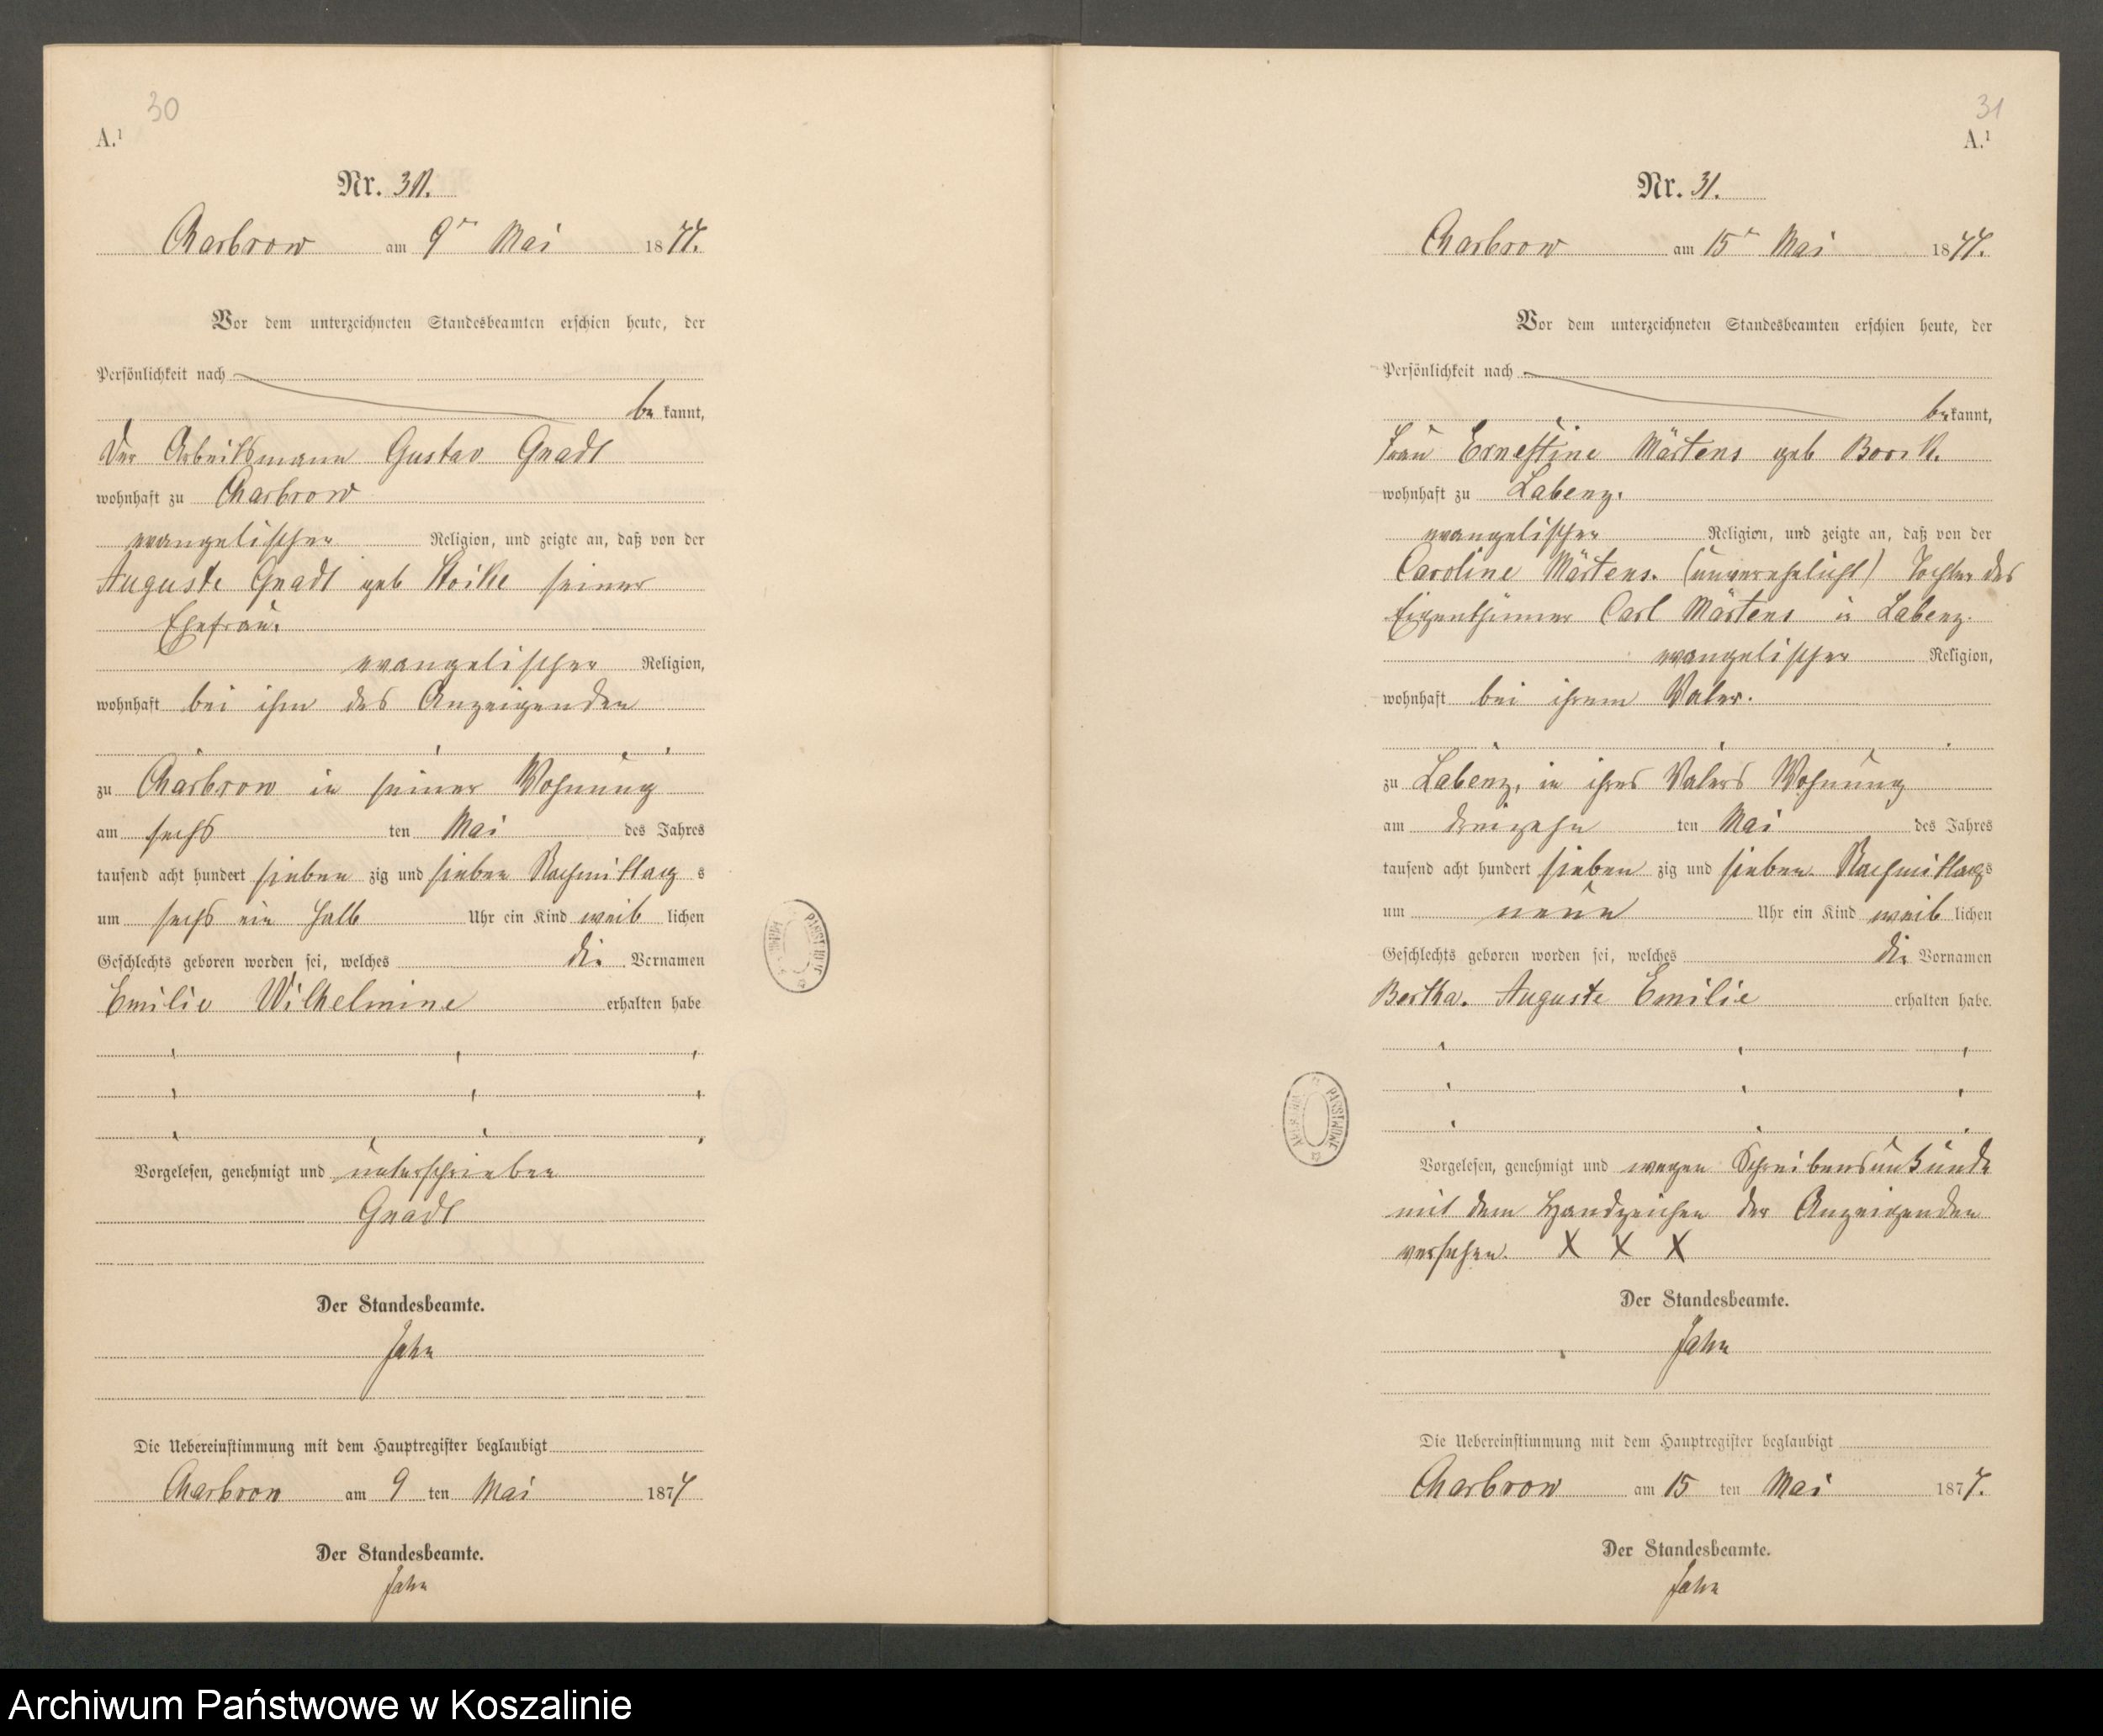 30
A.¹
Nr. 30.
Charbrow am 9ten Mai 1877.
Vor dem unterzeichneten Standesbeamten erschien heute, der
Persönlichkeit nach
be kannt,
der Arbeitsmann Gustav Gnadt
wohnhaft zu Charbrow
evangelischer Religion, und zeigte an, daß von der
Auguste Gnadt geb Stoike seiner
Ehefrau.
evangelischer Religion,
wohnhaft bei ihm des Anzeigenden
zu Charbrow in seiner Wohnung
am sechs ten Mai des Jahres
tausend acht hundert sieben zig und sieben Nachmittag s
um sechs ein halb Uhr ein Kind weib lichen
Geschlechts geboren worden sei, welches die Vornamen
Emilie Wilhelmine erhalten habe
Vorgelesen, genehmigt und unterschrieben
Gnadt
Der Standesbeamte.
Jahn
Die Uebereinstimmung mit dem Hauptregister beglaubigt
Charbrow am 9 ten Mai 1877
Der Standesbeamte.
Jahn
31
A.¹
Nr. 31.
Charbrow am 15ten Mai 1877.
Vor dem unterzeichneten Standesbeamten erschien heute, der
Persönlichkeit nach
be kannt,
Frau Ernestine Märtens geb
wohnhaft zu Labenz.
evangelischer Religion, und zeigte an, daß von der
Caroline Märtens. (unverehelicht) Tochter des
Eigenthümer Carl Märtens in Labenz.
evangelischer Religion,
wohnhaft bei ihrem Vater.
zu Labenz, in ihres Vaters Wohnung
am dreizehn ten Mai des Jahres
tausend acht hundert sieben zig und sieben Nachmittags
um neun Uhr ein Kind weib lichen
Geschlechts geboren worden sei, welches die Vornamen
Bertha. Auguste Emilie erhalten habe.
Vorgelesen, genehmigt und wegen Schreibensunkunde
mit dem Handzeichen der Anzeigenden
versehen. X X X
Der Standesbeamte.
Jahn
Die Uebereinstimmung mit dem Hauptregister beglaubigt
Charbrow am 15 ten Mai 1877.
Der Standesbeamte.
Jahn
Archiwum Państwowe w Koszalinie